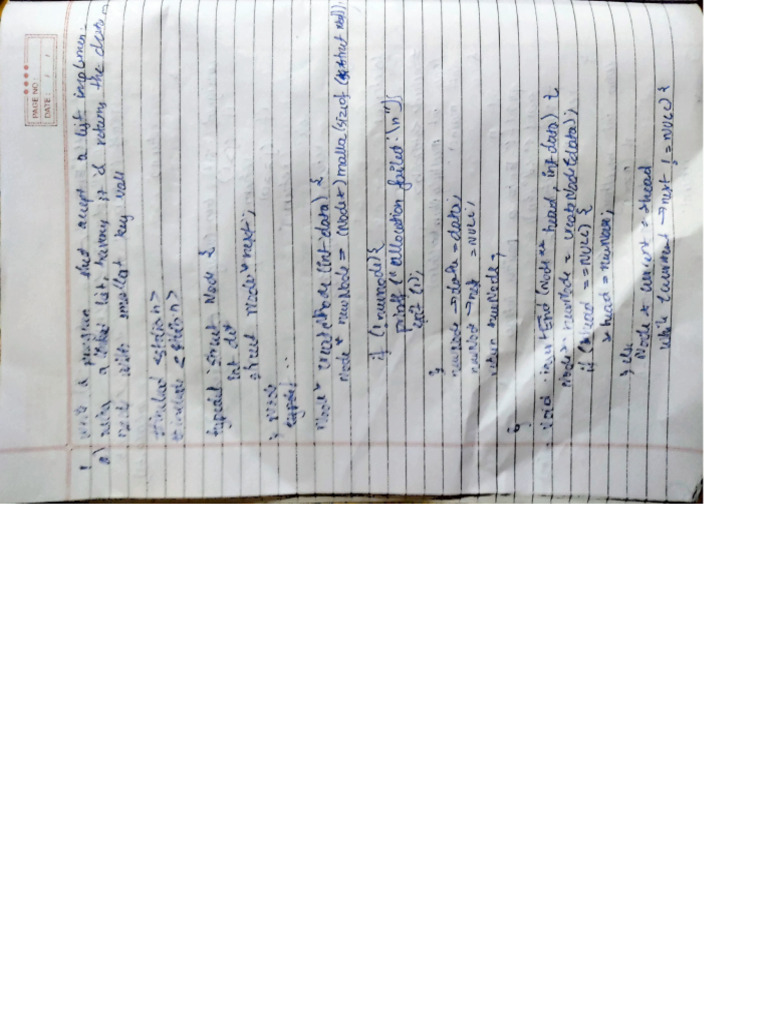 PAGE NO:
DATE: / /
1 write a program that accept a list implemen-
a) using a linked list, traverse it & return the data in
node with smallest key value
#include <stdio.h>
#include <stdlib.h>
typedef struct Node {
int dat
struct Node* next;
} Node
Node* createNode (int data) {
Node* newNode = (Node*) malloc (sizeof (struct Node));
if (!newNode) {
printf (" allocation failed. \n");
exit (1);
}
newNode → data = data;
newNod → next = NULL;
return newNode;
}
void insertEnd (Node** head, int data) {
Node* newNode = createNode(data);
if (*head == NULL) {
*head = newNode;
} else
Node* current = *head
while (current → next != NULL) {